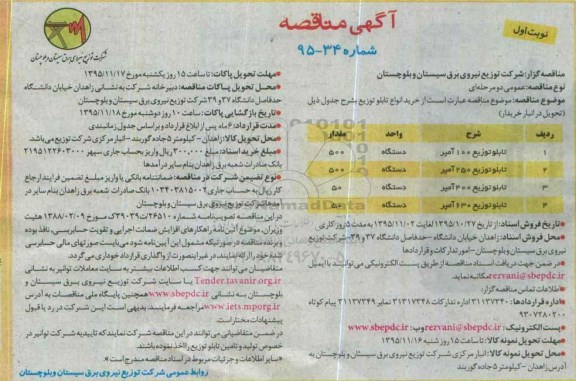 آگهی مناقصه
شماره ۳۴-۹۵
نوبت اول
شرکت توزیع نیروی برق سیستان و بلوچستان
مناقصه گزار: شرکت توزیع نیروی برق سیستان و بلوچستان
نوع مناقصه: عمومی دو مرحله‌ای
موضوع مناقصه: موضوع مناقصه عبارت است از خرید انواع تابلو توزیع بشرح جدول ذیل
(تحویل در انبار خریدار)
ردیف شرح واحد مقدار
۱ تابلو توزیع ۱۰۰ آمپر دستگاه ۵۰۰
۲ تابلو توزیع ۲۵۰ آمپر دستگاه ۵۰۰
۳ تابلو توزیع ۴۰۰ آمپر دستگاه ۵۰
۴ تابلو توزیع ۶۳۰ آمپر دستگاه ۵۰
تاریخ فروش اسناد: از تاریخ ۱۳۹۵/۱۰/۲۷ لغایت ۱۳۹۵/۱۱/۰۲ به مدت ۵ روز کاری
محل فروش اسناد: زاهدان خیابان دانشگاه - حدفاصل دانشگاه ۳۷ و ۳۹ - شرکت توزیع
نیروی برق سیستان و بلوچستان - امور تدارکات و قراردادها
در ضمن جهت دریافت اسناد مناقصه از طریق پست الکترونیکی می‌توانید با ایمیل
ervani@sbepdc.ir مکاتبه نماید.
اطلاعات تماس مناقصه گزار:
اداره قراردادها: ۳۱۱۳۷۲۴۰ اداره تدارکات ۳۱۱۳۷۲۴۸ نمابر ۳۱۱۳۷۲۴۹ پیام کوتاه
۹۳۰۷۲۸۰۲۰۰
پست الکترونیک: ervani@sbepdc.ir وب: www.sbepdc.ir
مهلت تحویل نمونه کالا: تا ساعت ۱۵ روز شنبه ۱۳۹۵/۱۱/۱۶
محل تحویل نمونه کالا: انبار مرکزی شرکت توزیع نیروی برق سیستان و بلوچستان به
آدرس زاهدان - کیلومتر ۵ جاده گوربند
مهلت تحویل پاکات: تا ساعت ۱۵ روز یکشنبه مورخ ۱۳۹۵/۱۱/۱۷
محل تحویل پاکات مناقصه: دبیرخانه شرکت به نشانی زاهدان خیابان دانشگاه
حدفاصل دانشگاه ۳۷ و ۳۹ شرکت توزیع نیروی برق سیستان و بلوچستان
تاریخ بازگشایی پاکات: ساعت ۱۰ روز دوشنبه مورخ ۱۳۹۵/۱۱/۱۸
مدت قرارداد: ۶ ماه پس از ابلاغ قرارداد و بر اساس جدول زمانبندی
محل تحویل کالا: زاهدان - کیلومتر ۵ جاده گوربند - انبار مرکزی شرکت توزیع می‌باشد.
مبلغ خرید اسناد: مبلغ ۳۰۰,۰۰۰ ریال واریز بحساب جاری سپهر ۲۱۹۵۱۲۲۶۰۳۰۰۰
بانک صادرات شعبه برق زاهدان بنام سایر درآمدها
نوع تضمین شرکت در مناقصه: ضمانتنامه بانکی یا واریز مبلغ تضمین فرایند ارجاع
کار ریال به حساب جاری ۰۱۰۳۴۰۳۸۱۵۰۰۲ بانک صادرات شعبه برق زاهدان بنام سایر در
آمدها شرکت توزیع نیروی برق سیستان و بلوچستان
در این مناقصه تصویبنامه شماره ۲۶۵۱۰/ت۳۹۰۳۹ک مورخ ۱۳۸۸/۰۲/۰۹ هئیت
وزیران، موضوع آئین نامه راهکارهای افزایش ضمانت اجرایی و تقویت حسابرسی، نافذ بوده
و برنده مناقصه در صورتیکه مشمول این آیین‌نامه شود می‌بایست صورتهای مالی حسابرسی
شده خود را ارائه نمایند، در غیر اینصورت از واگذاری قرارداد خودداری می‌گردد.
متقاضیان می‌توانند جهت کسب اطلاعات بیشتر به سایت معاملات توانیر به نشانی
Tender.tavanir.org.ir یا سایت شرکت توزیع نیروی برق سیستان و
بلوچستان به نشانی www.sbepdc.ir همچنین پایگاه ملی مناقصات به آدرس
www.iets.mporg.ir مراجعه فرمایند. بدیهی است این شرکت در رد یا قبول
پیشنهادات مختار است.
در ضمن متقاضیانی می‌توانند در این مناقصه شرکت نمایند که تاییدیه شرکت توانیر در
خصوص تولید و تامین تابلو توزیع را اخذ نموده باشند.
«سایر اطلاعات و جزئیات مربوط در اسناد مناقصه مندرج است»
روابط عمومی شرکت توزیع نیروی برق سیستان و بلوچستان